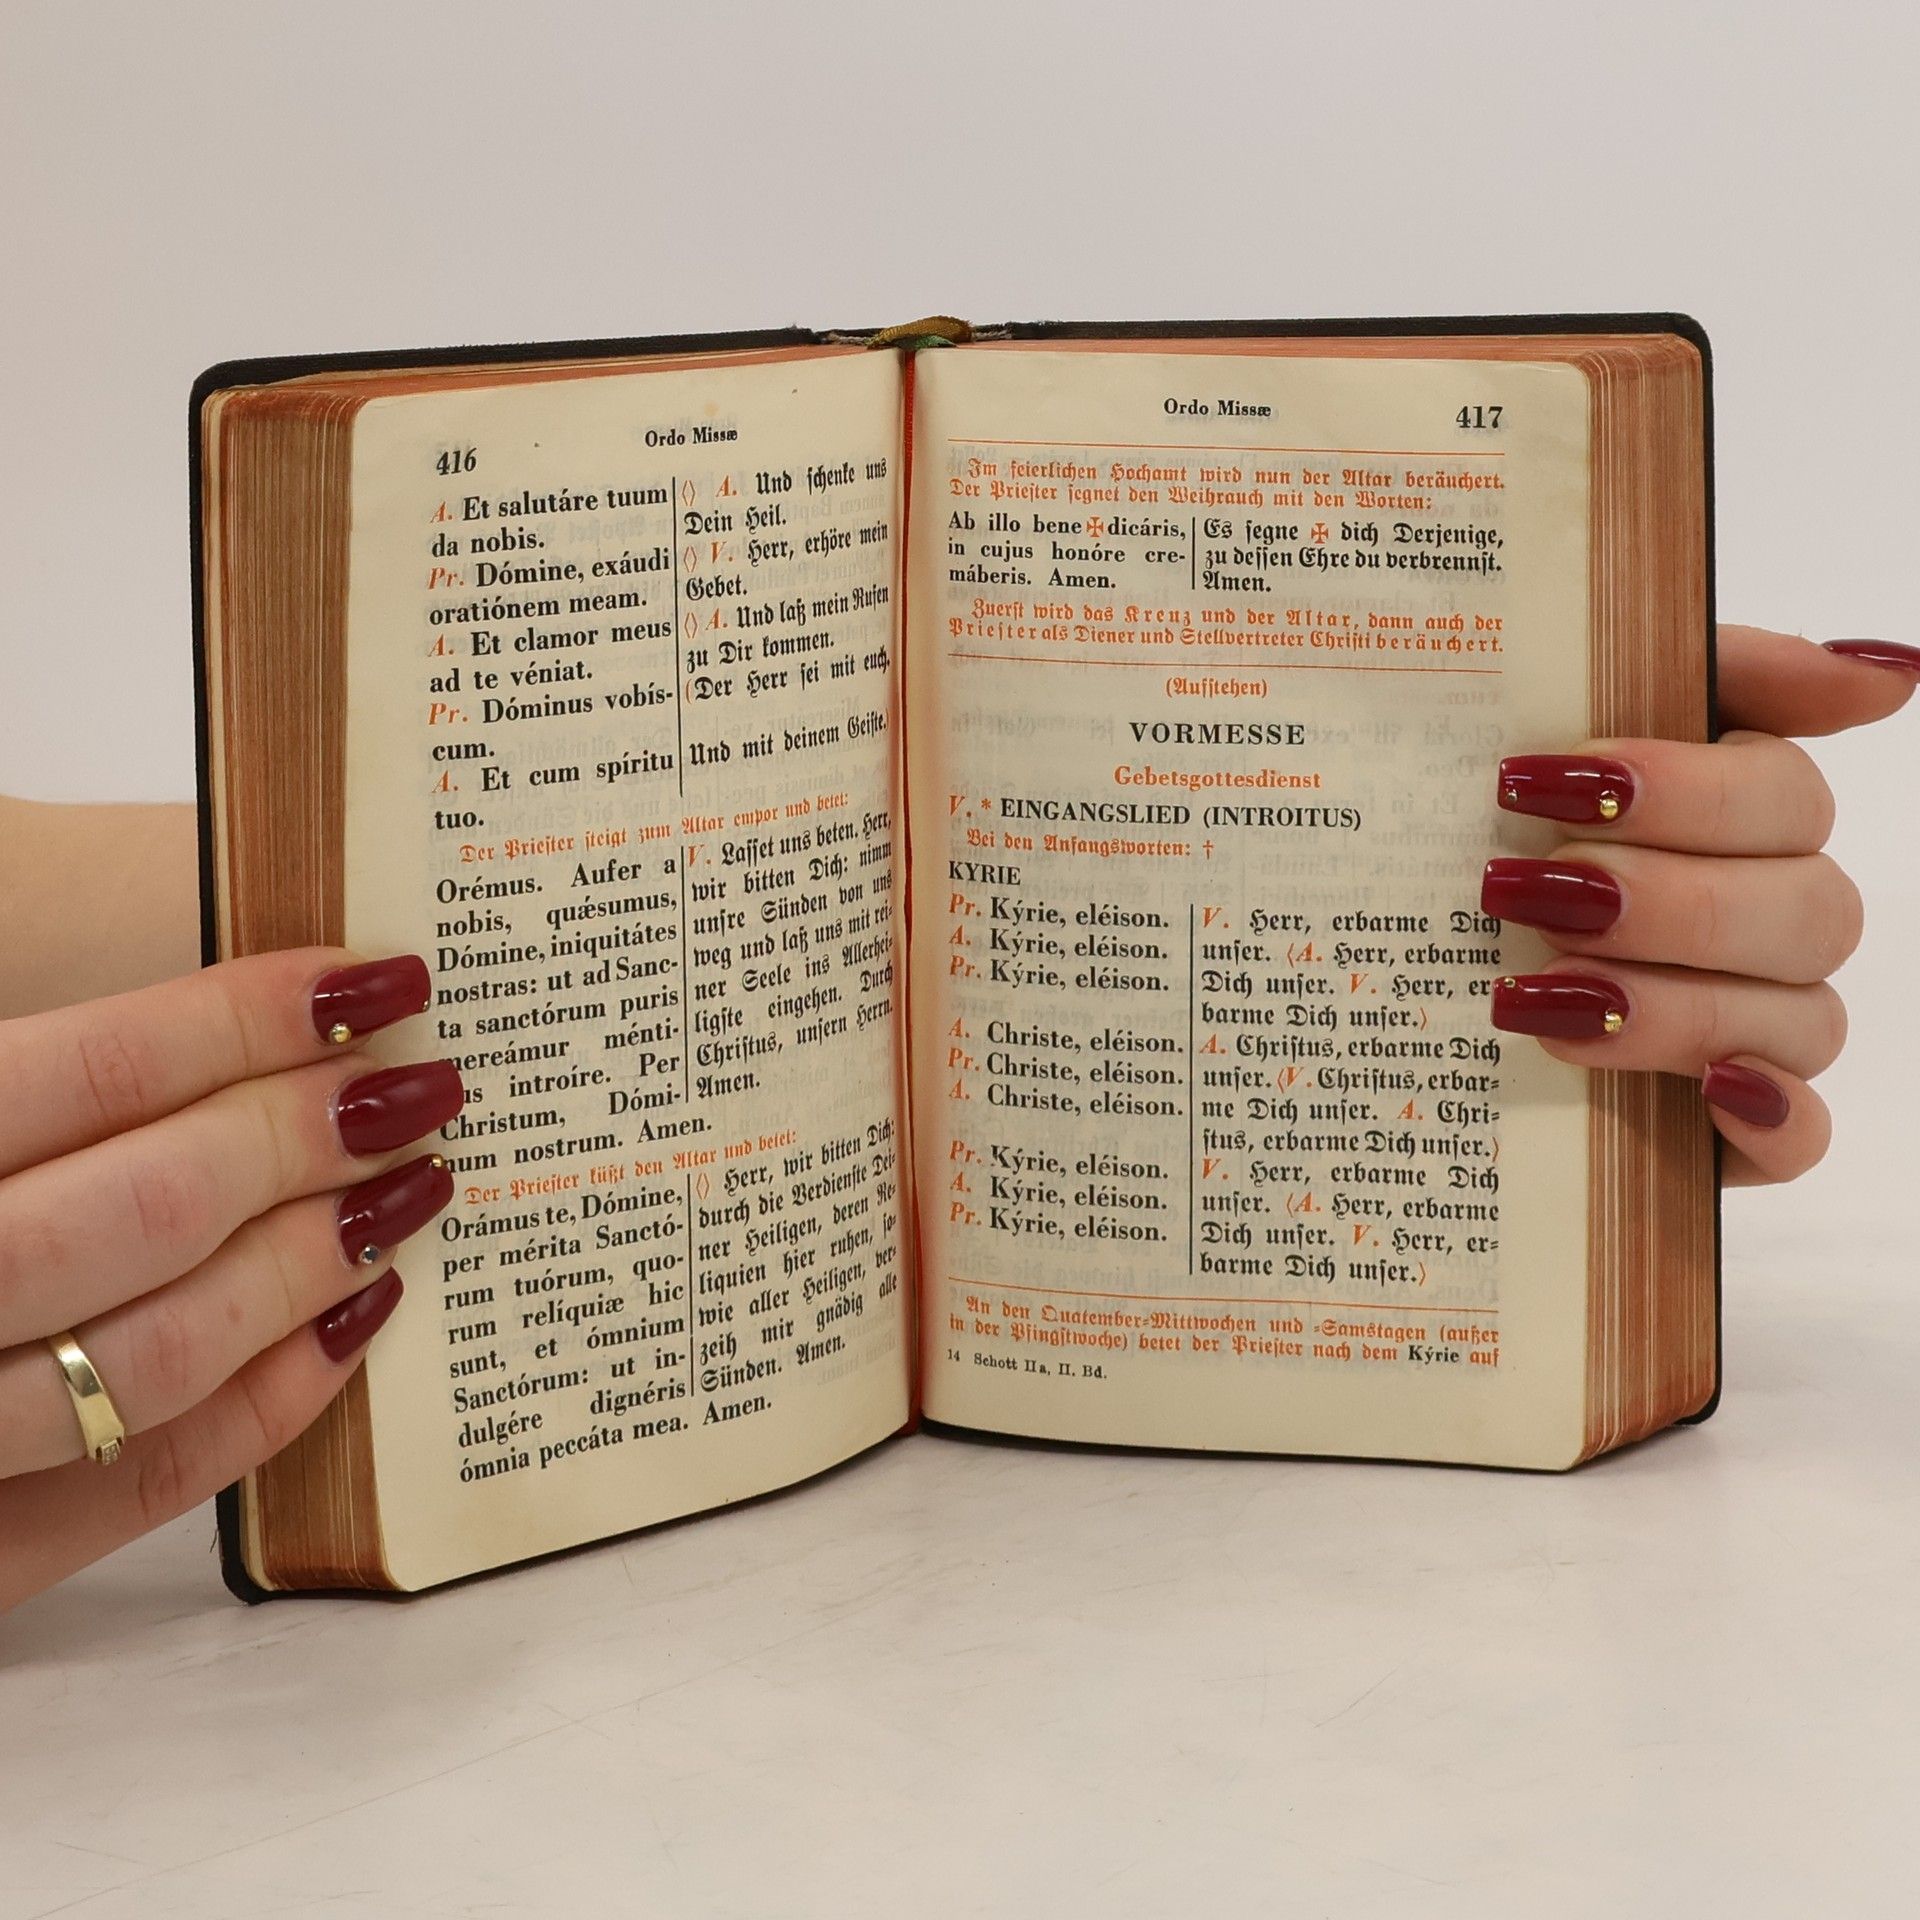 416
Ordo Missæ
A. Et salutáre tuum
da nobis.
Pr. Dómine, exáudi
oratiónem meam.
A. Et clamor meus
ad te véniat.
Pr. Dóminus vobís-
cum.
A. Et cum spíritu
tuo.
⟨⟩ A. Und ſchenke uns
Dein Heil.
⟨⟩ V. Herr, erhöre mein
Gebet.
⟨⟩ A. Und laß mein Rufen
zu Dir kommen.
(Der Herr ſei mit euch.
Und mit deinem Geiſte.)
Der Prieſter ſteigt zum Altar empor und betet:
Orémus. Aufer a
nobis, quǽsumus,
Dómine, iniquitátes
nostras: ut ad Sanc-
ta sanctórum puris
mereámur ménti-
us introíre. Per
Christum, Dómi-
num nostrum. Amen.
V. Laſſet uns beten. Herr,
wir bitten Dich: nimm
unſre Sünden von uns
weg und laß uns mit rei-
ner Seele ins Allerhei-
ligſte eingehen. Durch
Chriſtus, unſern Herrn.
Amen.
Der Prieſter küßt den Altar und betet:
Orámus te, Dómine,
per mérita Sanctó-
rum tuórum, quo-
rum relíquiæ hic
sunt, et ómnium
Sanctórum: ut in-
dulgére dignéris
ómnia peccáta mea. Amen.
⟨⟩ Herr, wir bitten Dich:
durch die Verdienſte Dei-
ner Heiligen, deren Re-
liquien hier ruhen, ſo-
wie aller Heiligen, ver-
zeih mir gnädig alle
Sünden. Amen.
Ordo Missæ
417
Im feierlichen Hochamt wird nun der Altar beräuchert.
Der Prieſter ſegnet den Weihrauch mit den Worten:
Ab illo bene✠dicáris,
in cujus honóre cre-
máberis. Amen.
Es ſegne ✠ dich Derjenige,
zu deſſen Ehre du verbrennſt.
Amen.
Zuerſt wird das Kreuz und der Altar, dann auch der
Prieſter als Diener und Stellvertreter Chriſti beräuchert.
(Aufſtehen)
VORMESSE
Gebetsgottesdienst
V. * EINGANGSLIED (INTROITUS)
Bei den Anfangsworten: †
KYRIE
Pr. Kýrie, eléison.
A. Kýrie, eléison.
Pr. Kýrie, eléison.
A. Christe, eléison.
Pr. Christe, eléison.
A. Christe, eléison.
Pr. Kýrie, eléison.
A. Kýrie, eléison.
Pr. Kýrie, eléison.
V. Herr, erbarme Dich
unſer. ⟨A. Herr, erbarme
Dich unſer. V. Herr, er
barme Dich unſer.⟩
A. Chriſtus, erbarme Dich
unſer. ⟨V. Chriſtus, erbar-
me Dich unſer. A. Chri-
ſtus, erbarme Dich unſer.⟩
V. Herr, erbarme Dich
unſer. ⟨A. Herr, erbarme
Dich unſer. V. Herr, er-
barme Dich unſer.⟩
An den Quatember-Mittwochen und -Samstagen (außer
in der Pfingſtwoche) betet der Prieſter nach dem Kýrie auf
14 Schott IIa, II. Bd.